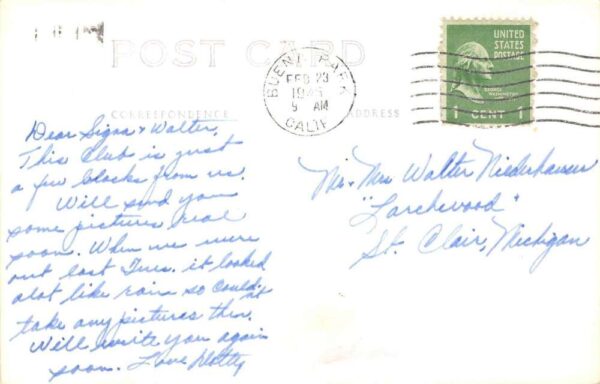 POST CARD
UNITED STATES POSTAGE
GEORGE WASHINGTON
1 CENT 1
BUENA PARK
FEB 23
9 AM
CALIF
CORRESPONDENCE
ADDRESS
Dear Signa & Walter,
This Club is just
a few blocks from us.
Will send you
some pictures real
soon. When we were
out last Tues. it looked
alot like rain so couldn't
take any pictures then.
Will write you again
soon. Love Dotty
Mr. Mrs Walter Niederhausen
"Larchwood"
St. Clair, Michigan